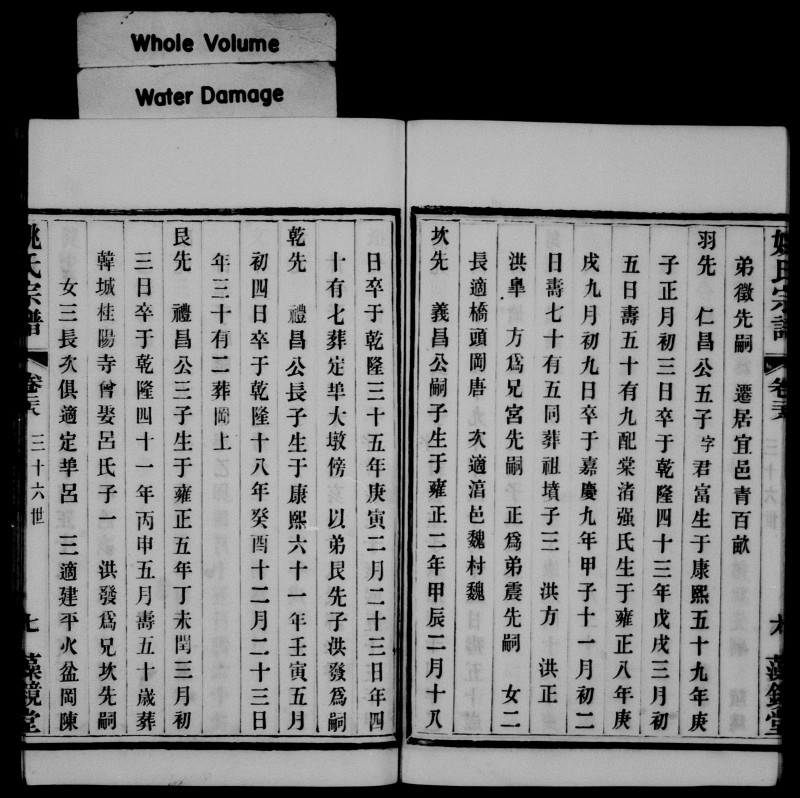 Whole Volume
Water Damage
弟徵先嗣 遷居宜邑青百畝
羽先 仁昌公五子字君富生于康熙五十九年庚
子正月初三日卒于乾隆四十三年戊戌三月初
五日壽五十有九配棠渚强氏生于雍正八年庚
戌九月初九日卒于嘉慶九年甲子十一月初二
日壽七十有五同葬祖墳子三 洪方 洪正
洪臯 方爲兄宮先嗣 正爲弟震先嗣 女二
長適橋頭岡唐 次適湻邑魏村魏
坎先 義昌公嗣子生于雍正二年甲辰二月十八
日卒于乾隆三十五年庚寅二月二十三日年四
十有七葬定埠大墩傍 以弟艮先子洪發爲嗣
乾先 禮昌公長子生于康熙六十一年壬寅五月
初四日卒于乾隆十八年癸酉十二月二十三日
年三十有二葬岡上
艮先 禮昌公三子生于雍正五年丁未閏三月初
三日卒于乾隆四十一年丙申五月壽五十歲葬
韓城桂陽寺曾娶呂氏子一 洪發爲兄坎先嗣
女三長次俱適定埠呂 三適建平火盆岡陳
姚氏宗譜 卷三十六世 七 藻鏡堂